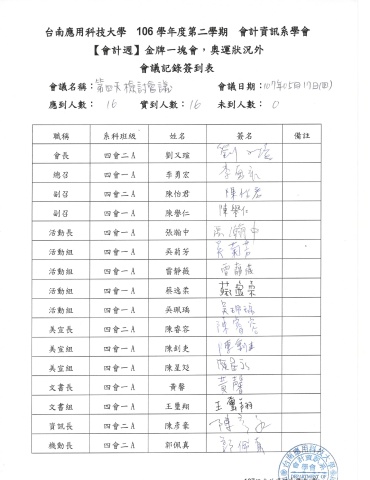 台南應用科技大學 106學年度第二學期 會計資訊系學會
【會計週】金牌一塊會，奧運狀況外
會議記錄簽到表
會議名稱：第四次檢討會議 會議日期：107年05月17日(四)
應到人數： 16 實到人數： 16 未到人數： 0
職稱 系科班級 姓名 簽名 備註
會長 四會二A 劉又瑄 劉又瑄
總召 四會一A 李勇宏 李勇宏
副召 四會二A 陳怡君 陳怡君
副召 四會一A 陳譽仁 陳譽仁
活動長 四會一A 張瀚中
活動組 四會一A 吳莉芳
活動組 四會一A 雷靜薇
活動組 四會一A 蔡逸柔
活動組 四會一A 吳珮瑀
美宣長 四會一A 陳睿容 陳睿容
美宣組 四會一A
美宣組 四會一A
文書長 四會一A 黃馨 黃馨
文書組 四會一A 王璽翔 王璽翔
資訊長 四會二A 陳彥豪
機動長 四會二A 郭佩真 郭佩真